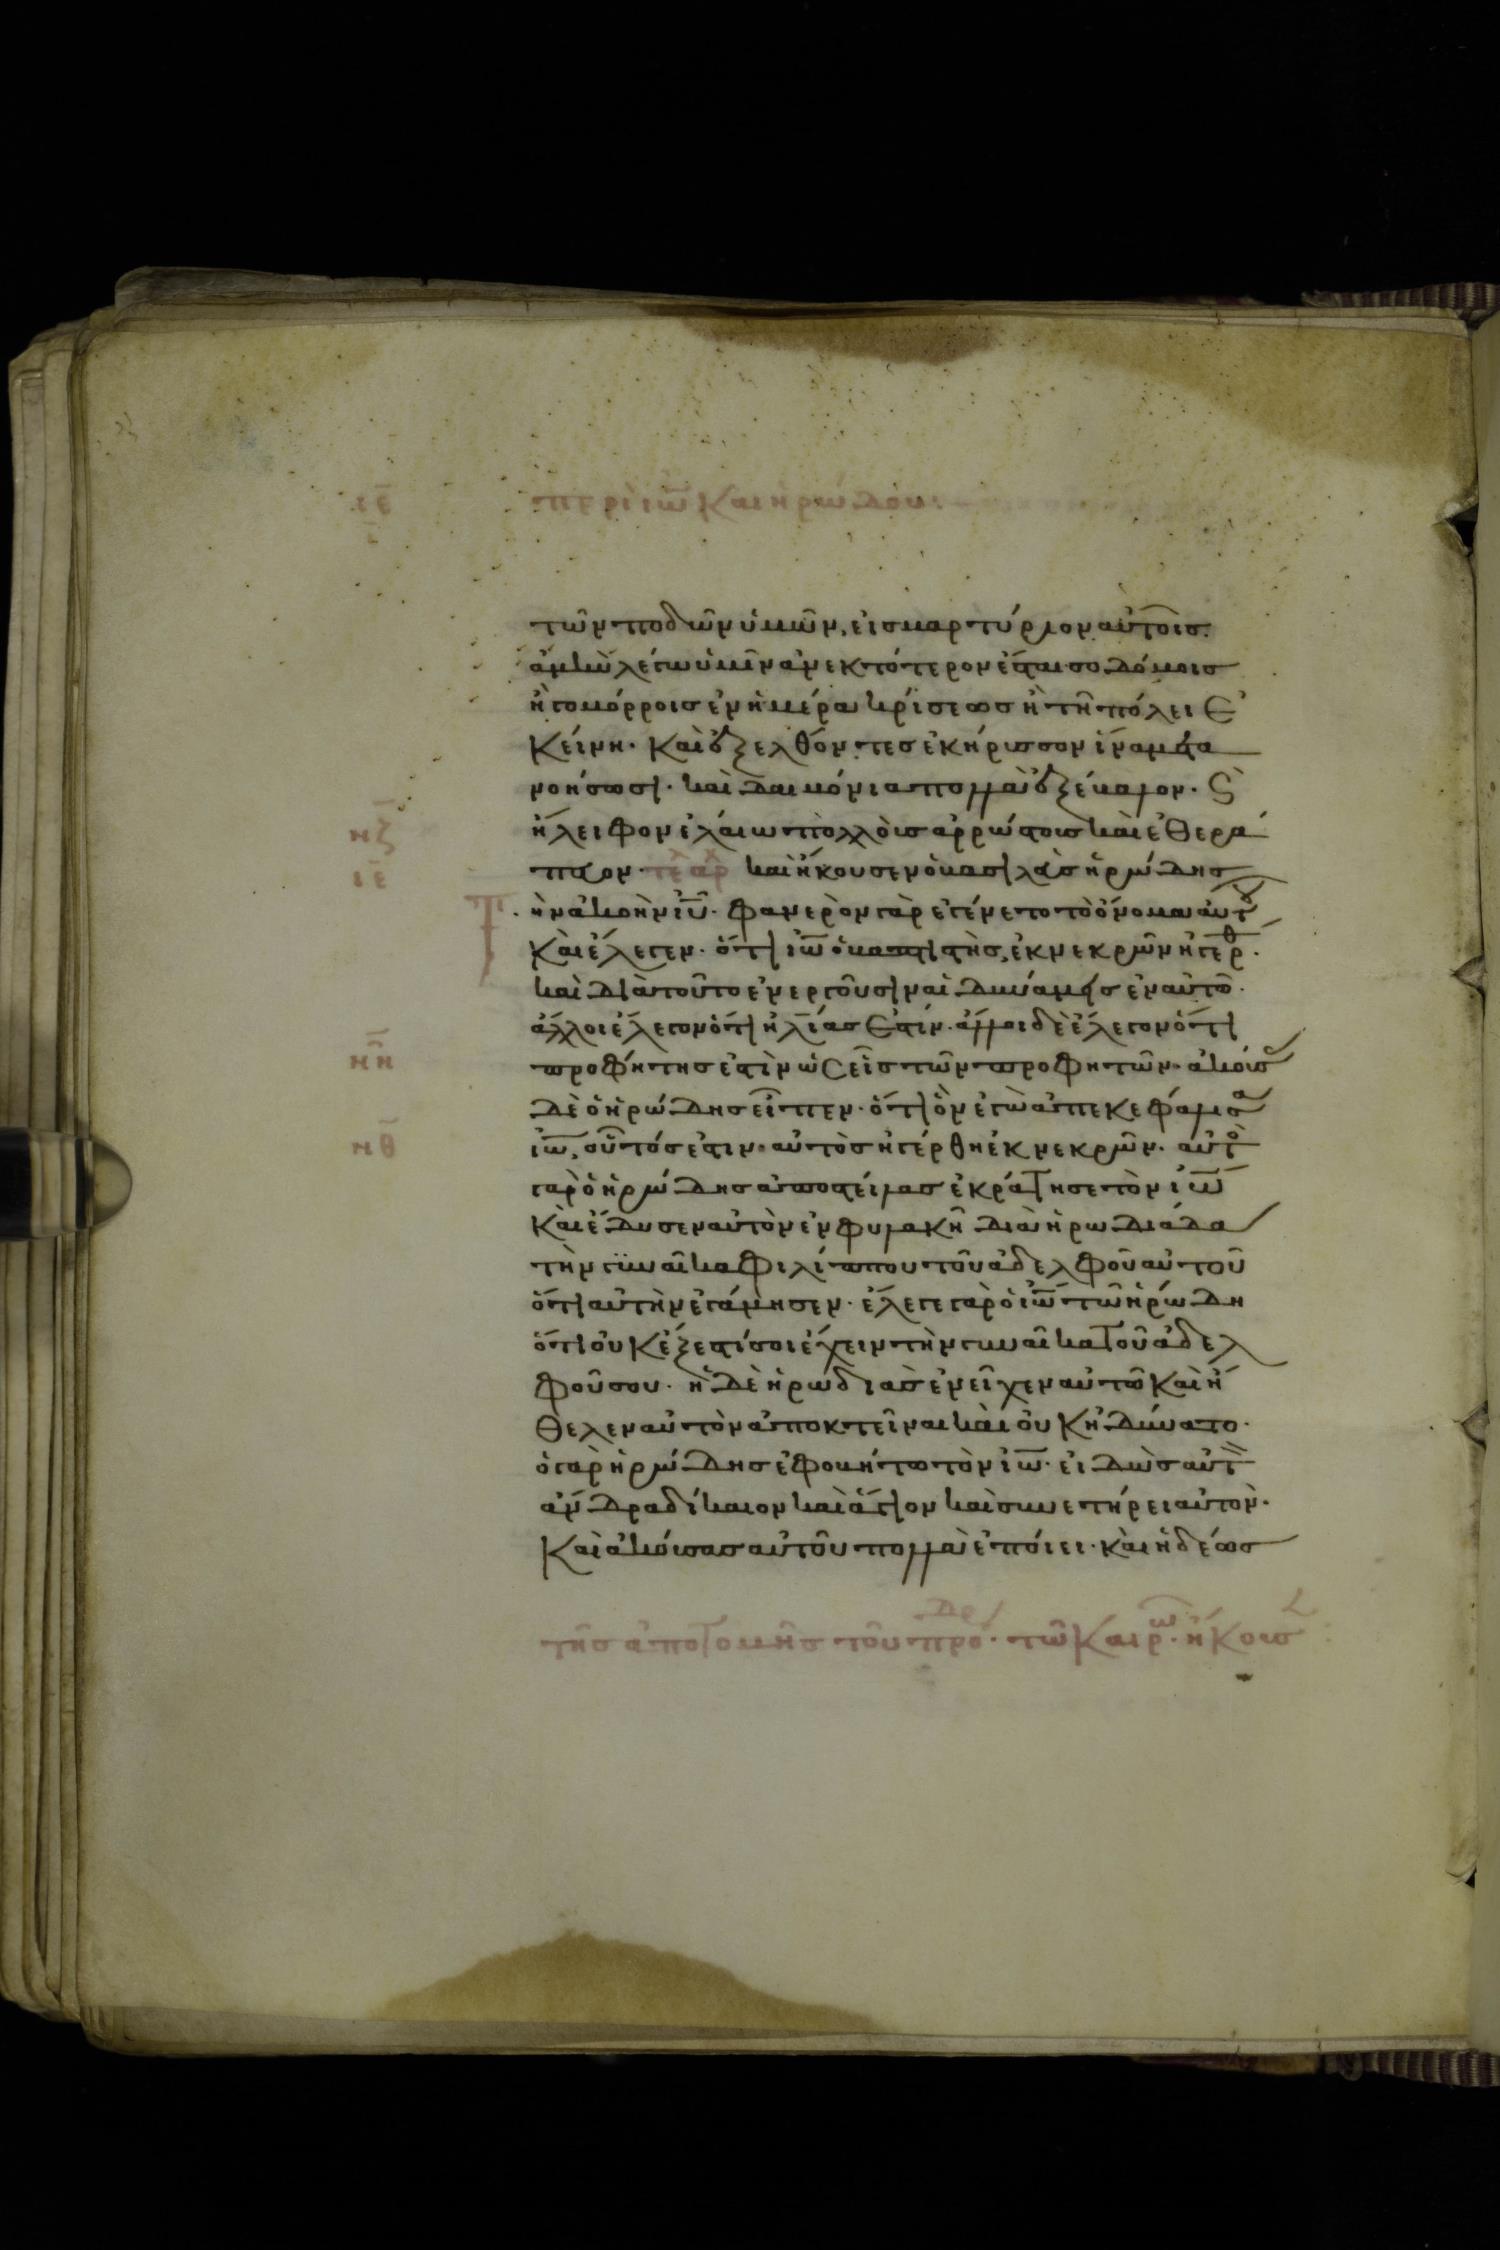 ιε̅ περὶ ιω̅ Καὶ ηρώδου:
τῶν ποδῶν ὑμῶν, εἰς μαρτύριον αὐτοῖς.
ἀμὴν λέγω ὑμῖν ἀνεκτότερον ἔσται σοδόμοις
ἢ γομόρροις ἐν ἡμέρα κρίσεως ἢ τῆ πόλει ἐ
κείνη. Καὶ ἐξελθόντες ἐκήρυσσον ἵνα μετα
νοήσωσι. καὶ δαιμόνια πολλὰ ἐξέβαλον. Ϛ̀
νζ̅ ἤλειφον ἐλαίω πολλοὺς ἀρρώστους καὶ ἐθερά
ιε̅ πευον. τέ̅ αρχ καὶ ἤκουσεν ὁ βασιλεὺς ἡρώδης
τὴν ἀκοὴν ιυ̅. φανερὸν γὰρ ἐγένετο τὸ ὄνομα αὐτου
Καὶ ἔλεγεν. ὅτι ιω̅ ὁ βαπτιστὴς, ἐκ νεκρῶν ἠγέρθ.
καὶ διὰ τοῦτο ἐνεργοῦσιν αἱ δυνάμεις ἐν αὐτῶ.
ἄλλοι ἔλεγον ὅτι ἠλίας ἐστίν. ἄλλοι δὲ ἔλεγον ὅτι
νη̅ προφήτης ἐστὶν ὡς εἷς τῶν προφητῶν. ἀκούσας
δὲ ὁ ἡρώδης εἶπεν. ὅτι ὃν ἐγὼ ἀπεκεφάλισα
νθ̅ ιω̅, οὗτός ἐστιν. αὐτὸς ἠγέρθη ἐκ νεκρῶν. αὐτὸ
γὰρ ὁ ἡρώδης ἀποστείλας ἐκράτησε τὸν ιω̅
Καὶ ἔδυσεν αὐτὸν ἐν φυλακῆ διὰ ἡρωδιάδα
τὴν γυναῖκα φιλίππου τοῦ ἀδελφοῦ αὐτοῦ
ὅτι αὐτὴν ἐγάμησεν. ἔλεγε γὰρ ὁ ιω̅ τῶ ἡρώδη
ὅτι οὐκ ἔξεστί σοι ἔχειν τὴν γυναῖκα τοῦ ἀδελ
φοῦ σου. ἡ δὲ ἡρωδιὰς ἐνεῖχεν αὐτῶ καὶ ἤ
θελεν αὐτὸν ἀποκτεῖναι καὶ οὐκ ἠδύνατο.
ὁ γὰρ ἡρώδης ἐφοβήτω τὸν ιω̅. εἰδὼς αὐτ
ἄνδρα δίκαιον καὶ ἅγιον καὶ συνετήρει αὐτὸν.
Καὶ ἀκούσας αὐτοῦ πολλὰ ἐποίει. καὶ ἡδέως
τῆς ἀποτομῆς τοῦ προδ. τῶ Καιρω. ἤκουσ